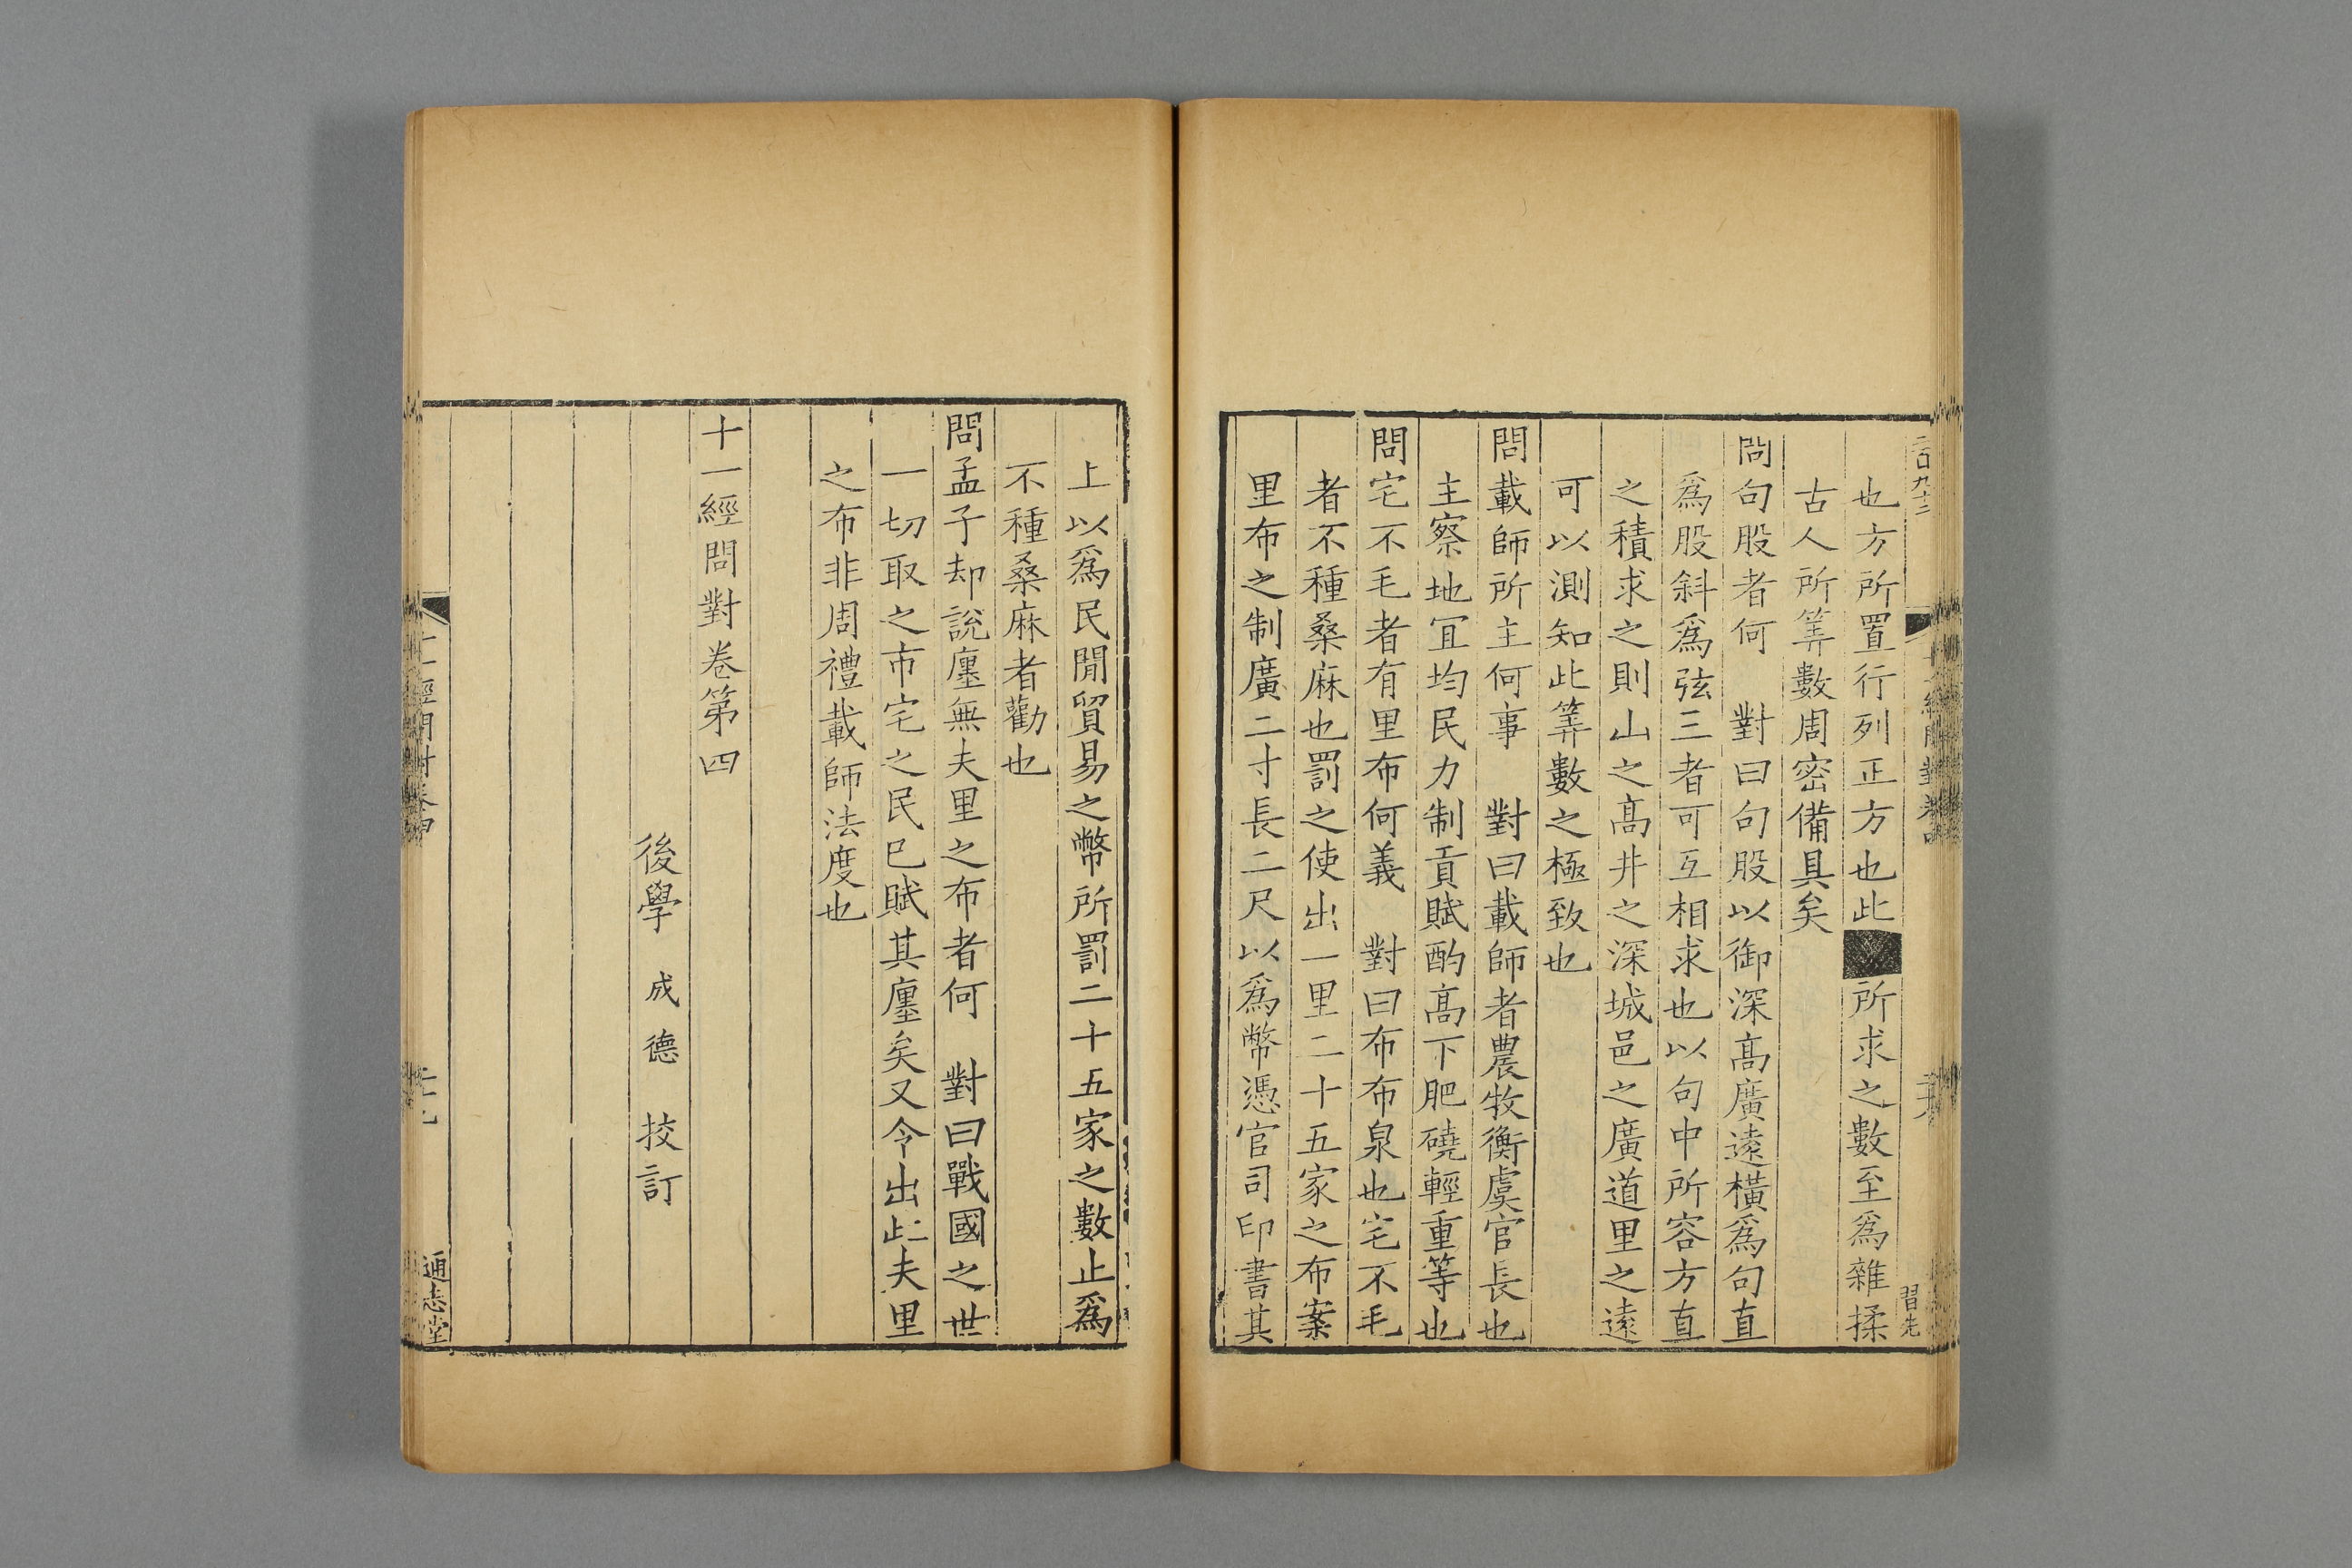 也方所置行列正方也此所求之數至爲雜揉
古人所筭數周密備具矣
問句股者何　對曰句股以御深髙廣遠橫爲句直
爲股斜爲弦三者可互相求也以句中所容方直
之積求之則山之髙井之深城邑之廣道里之遠
可以測知此筭數之極致也
問載師所主何事　對曰載師者農牧衡虞官長也
主察地宜均民力制貢賦酌髙下肥磽輕重等也
問宅不毛者有里布何義　對曰布布泉也宅不毛
者不種桑麻也罰之使出一里二十五家之布案
里布之制廣二寸長二尺以爲幣憑官司印書其
上以爲民閒貿易之幣所罰二十五家之數止爲
不種桑麻者勸也
問孟子却說廛無夫里之布者何　對曰戰國之世
一切取之市宅之民已賦其廛矣又令出此夫里
之布非周禮載師法度也
十一經問對卷第四
後學　成德　挍訂
十一經問對卷四
通志堂